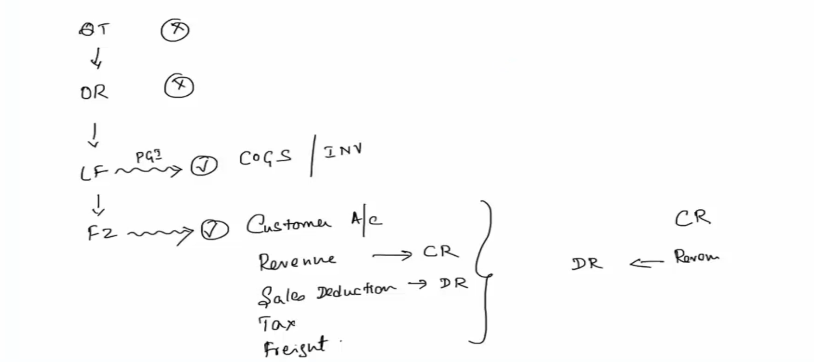 QT X
↓
OR X
↓
LF PGI → ✓ COGS / INV
↓
F2 → ✓ Customer A/c
Revenue → CR
Sales Deduction → DR
Tax
Freight.
CR
DR ←